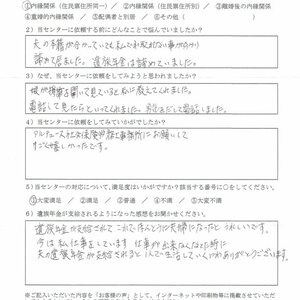 ①内縁関係（住民票住所同一） ②内縁関係（住民票住所別） ③離婚後の内縁関係
④重婚的内縁関係 ⑤配偶者と別居 ⑥その他（ ）
2）当センターに依頼する前にどんなことで悩んでいましたか？
夫の籍が分かっていても
諦めて居ました。遺族年金は諦めていました。
3）なぜ、当センターに依頼をしてみようと思われましたか？
娘が携帯を開いて見ているうちに教えてくれました。
電話して見たらといってくれました。
4）当センターに依頼をしてみていかがでしたか？
アルテュース社会保険労務士事務所にお願いして
すごく嬉しかったです。
5）当センターの対応について、満足度はいかがですか？該当する番号に○をしてください。
①大変満足 ／ ②満足 ／ ③普通 ／ ④不満 ／ ⑤大変不満
6）遺族年金が支給されるようになった感想をお聞かせください。
遺族年金が支給されて これでほんとうに夫婦になったと うれしいです。
今は私も仕事をしています 仕事が出来なくなった時に
夫の遺族年金が支給されると 生活していくのにありがとうございます。
※ご記入いただいた内容を「お客様の声」として、インターネットや印刷物等に掲載させて